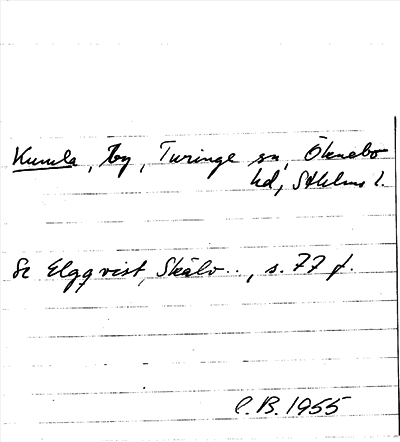 Kumla, by, Turinge sn, Öknebo
hd, Sthlms l.
Se Elgqvist, Skälv.., s. 77 f.
C.B. 1955